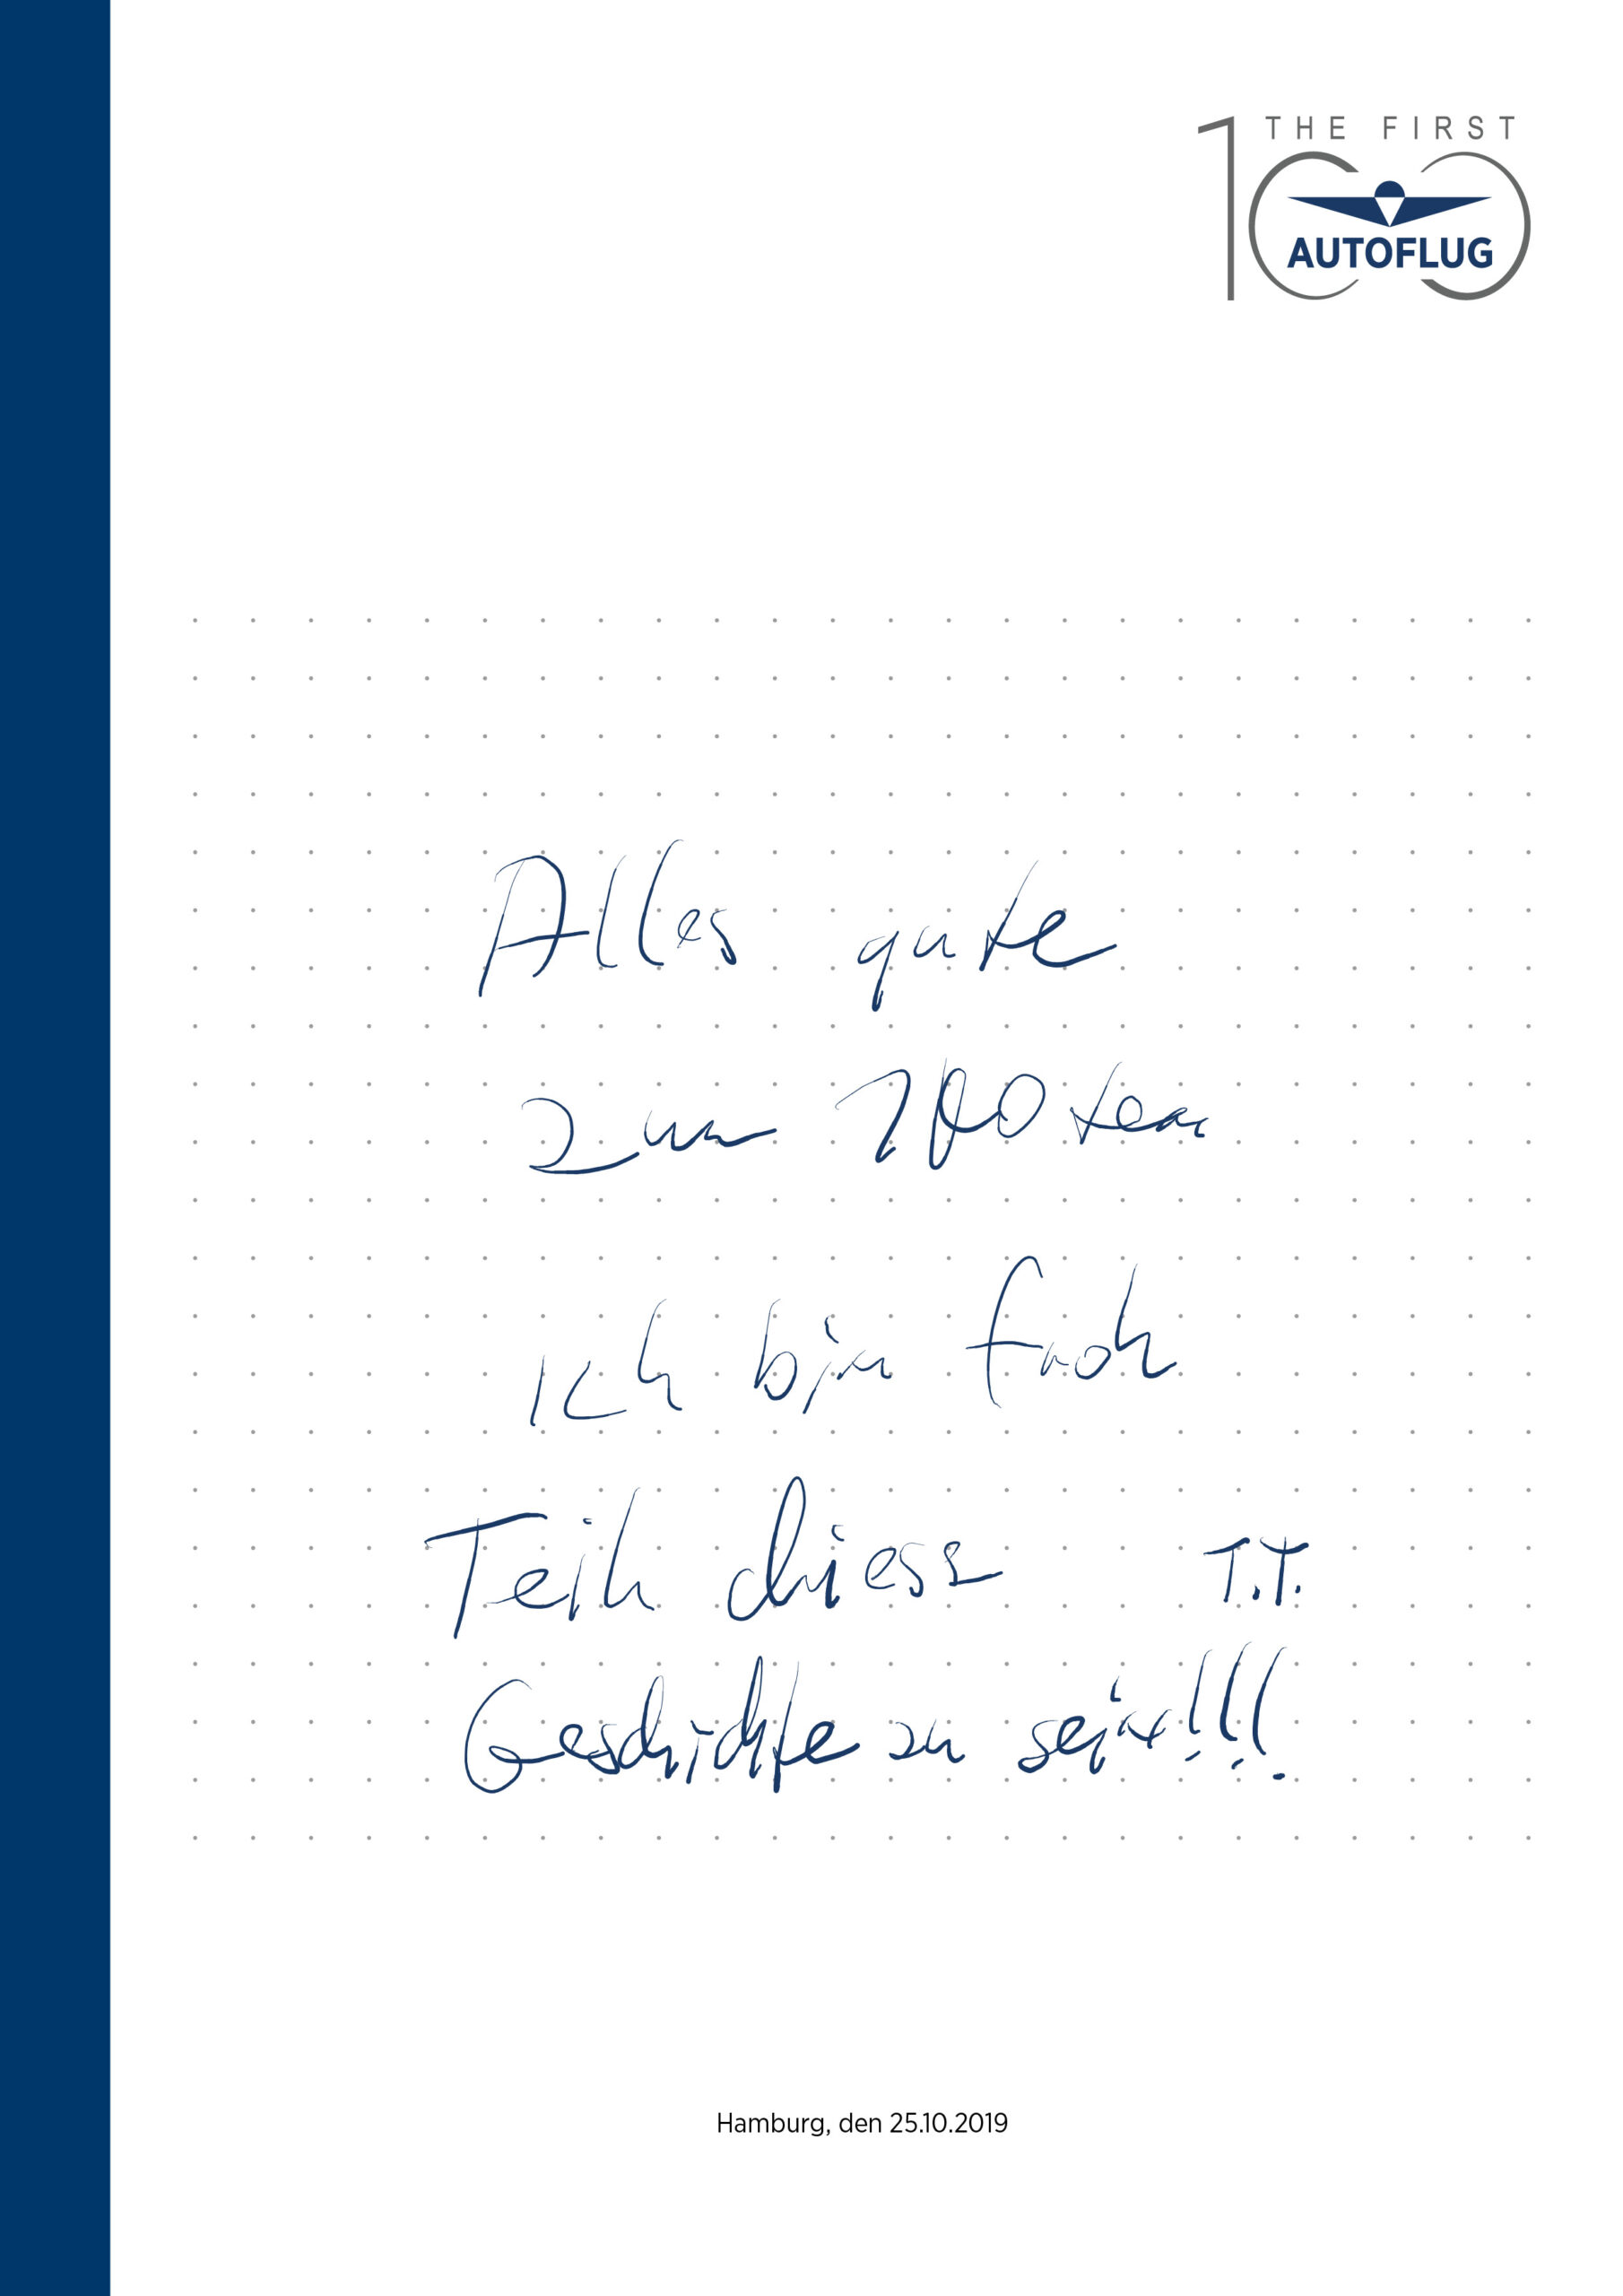 THE FIRST
100
AUTOFLUG
Alles gute
zum 100ten
Ich bin froh
Teil dieser T.T.
Geschichte zu sein!!!
Hamburg, den 25.10.2019